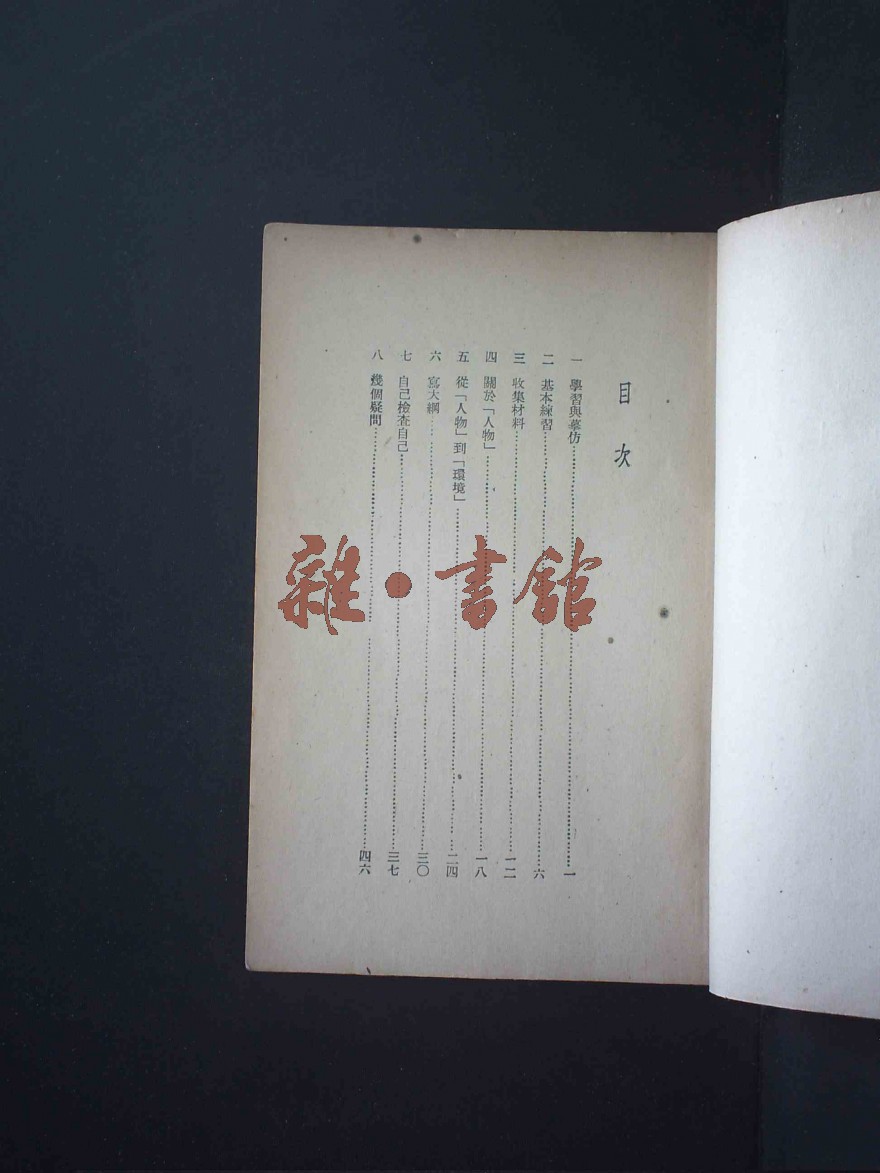 目次
一 學習與摹仿……一
二 基本練習……六
三 收集材料……一二
四 關於「人物」……一八
五 從「人物」到「環境」……二四
六 寫大綱……三〇
七 自己檢查自己……三七
八 幾個疑問……四六
雜·書館